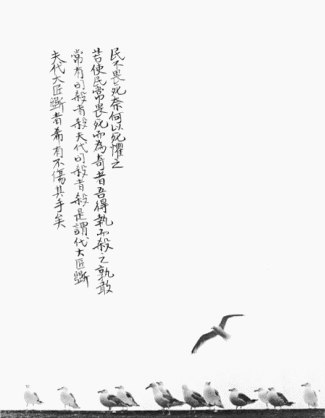 民不畏死奈何以死懼之
若使民常畏死而為奇者吾得執而殺之孰敢
常有司殺者殺夫代司殺者殺是謂代大匠斲
夫代大匠斲者希有不傷其手矣